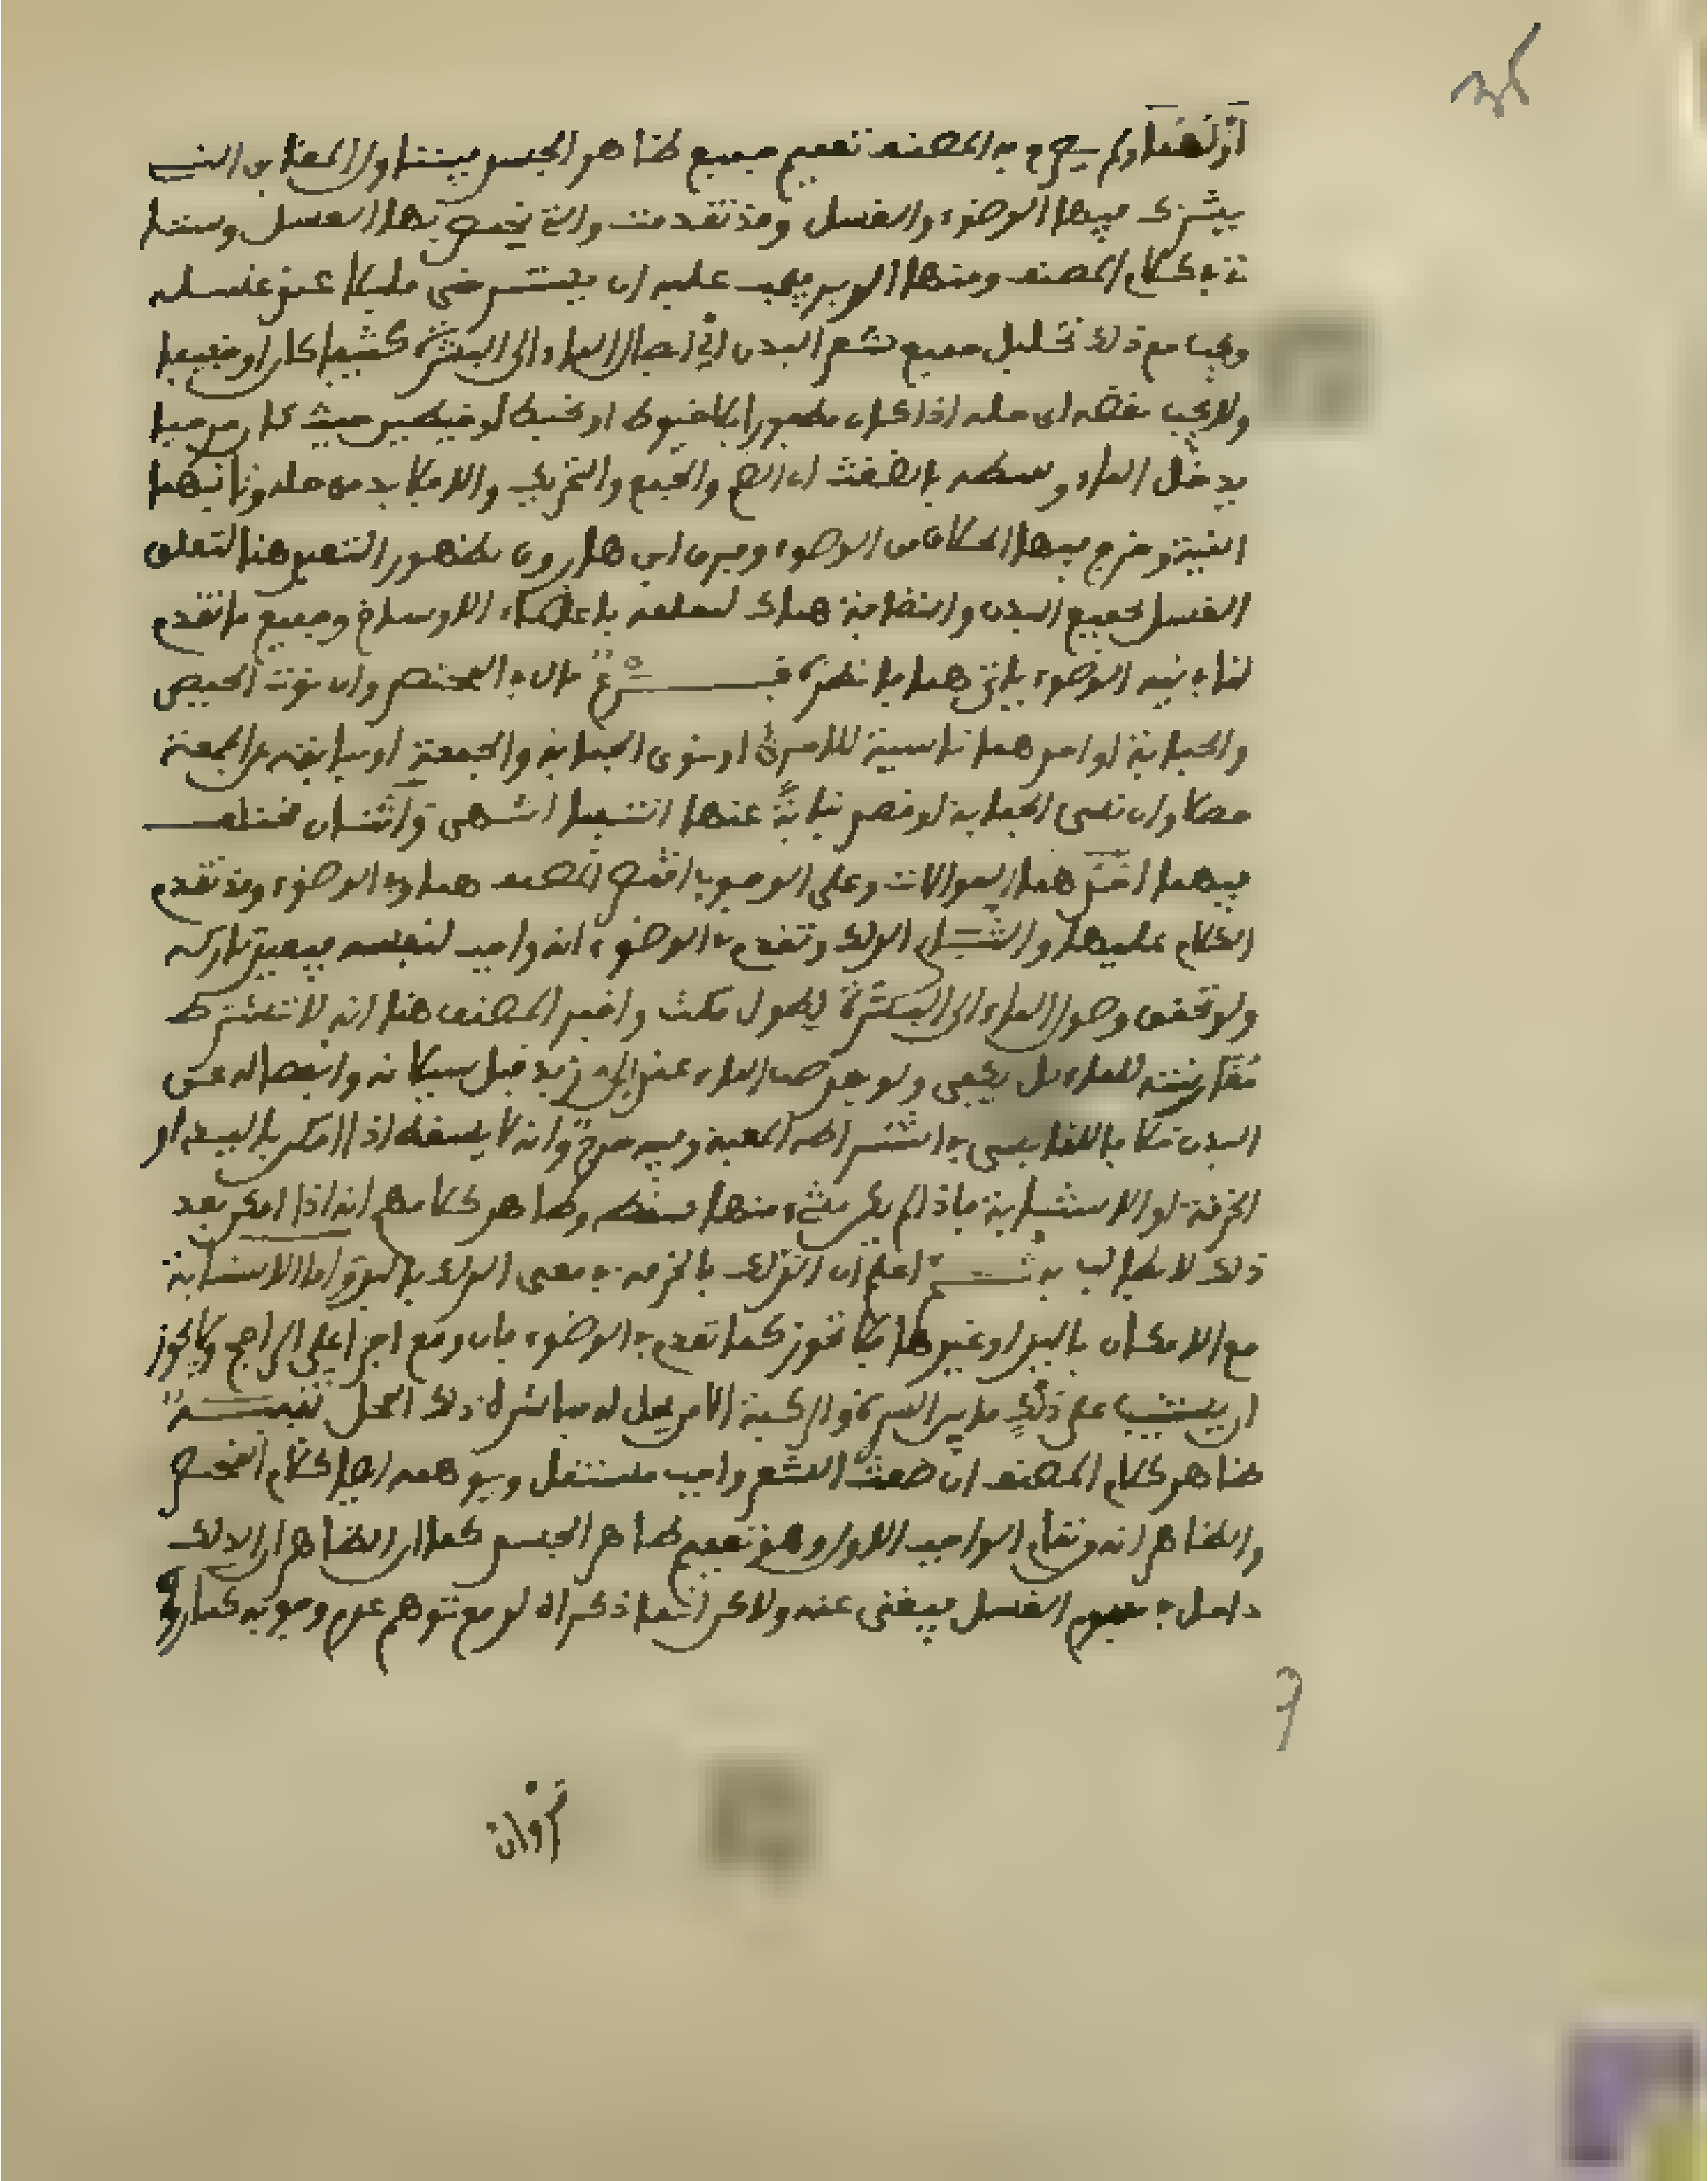 أولها ولم يصرح به المصنف تعميم جميع ظاهر الجسد فيتناول المغابن التي
يشترك فيها الوضوء والغسل وقد تقدمت والتي يختص بها الغسل وستا
تي في كلام المصنف ومنها الدبر فيجب عليه ان يسترخي قليلا عند غسله
ويجب مع ذلك تخليل جميع شعر البدن اي ايصال الماء الى البشرة كثيفا كان او خفيفا
ولا يجب نقضه اي حله اذا كان مظفورا بلا خيوط او بخيط او خيطين حيث كان مرخيا
يدخل الماء وسطه بالضغث اي الضم والجمع والتحريك والا فلا بد من حله وثانيها
النية وخرج فيها الخلاف من الوضوء وفرق ابن هارون بظهور التعبد هنا لتعلق
الغسل بجميع البدن والنظافة هناك لتعلقه باعضاء الاوساخ وجميع ما تقدم
لنا في نية الوضوء ياتي هنا بانظره فرع قال في المختصر وان نوت الحيض
والجنابة او احدهما ناسية للاخرى او نوى الجنابة والجمعة او نيابة عن الجمعة
حصلا وان نسي الجنابة او قصد نيابة عنها انتفيا انتهى وثالثها مختلف
فيهما احدهما الموالات وعلى الوجوب اقتصر المصنف هنا وفي الوضوء وقد تقدم
الكلام عليها والثاني الدلك وتقدم في الوضوء انه واجب لنفسه فيعيد تاركه
ولو تحقق وصول الماء الى البشرة لطول مكث واخبر المصنف هنا انه لا تشترط
مقارنته للماء بل يكفي ولو بعد صب الماء عند ابن ابي زيد قبل سيلانه وانفصاله عن
البدن خلافا للقابسي في اشتراطه المعية وفيه حرج وانه لا يسقط اذا امكن باليد او
الخرقة او الاستنابة فاذا لم يكن شيء منها سقط وظاهر كلامهم انه اذا امكن بعد
ذلك لا يطالب به تنبيه اعلم ان الدلك بالخرقة في معنى الدلك باليد واما الاستنابة
مع الامكان باليد او غيرها فلا تجوز كما تقدم في الوضوء فان وقع اجزا على الراجح ولا يجوز
ان يستنيب على ذلك ما بين السرة والركبة الا من يحل له مباشرة ذلك المحل تنبيه
ظاهر كلام المصنف ان ضغث الشعر واجب مستقل ويوهمه ايضا كلام المختصر
والظاهر انه من تمام الواجب الاول وهو تعميم ظاهر الجسد كما ان الظاهر ان الدلك
داخل في مفهوم الغسل فيغني عنه ولاكن انما ذكراه لدفع توهم عدم وجوبه كما روي